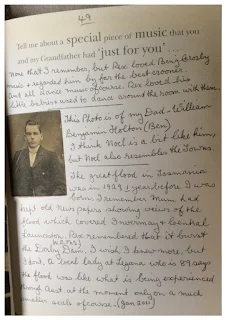 49
Tell me about a special piece of music that you
and my Grandfather had 'just for you'...
None that I remember, but Rex loved Bing Crosby
music & regarded him by far the best crooner
but all dance music of course. Rex loved his
little babies & used to dance around the room with them
This Photo is of my Dad - William
Benjamin Holton (Ben)
I think Noel is a bit like him,
but Noel also resembles the Towns.
The great flood in Tasmania
was in 1929, 1 year before I was
born. I remember Mum had
kept old Newspapers showing views of the
flood which covered Invermay & central
Launceston. Rex remembered that it burst
the Derby Dam. I wish I knew more, but
I don't. A local lady at Legana who is 89 says
the flood was like what is being experienced
through Aust. at the moment only on a much
smaller scale of course. (Jan 2011)